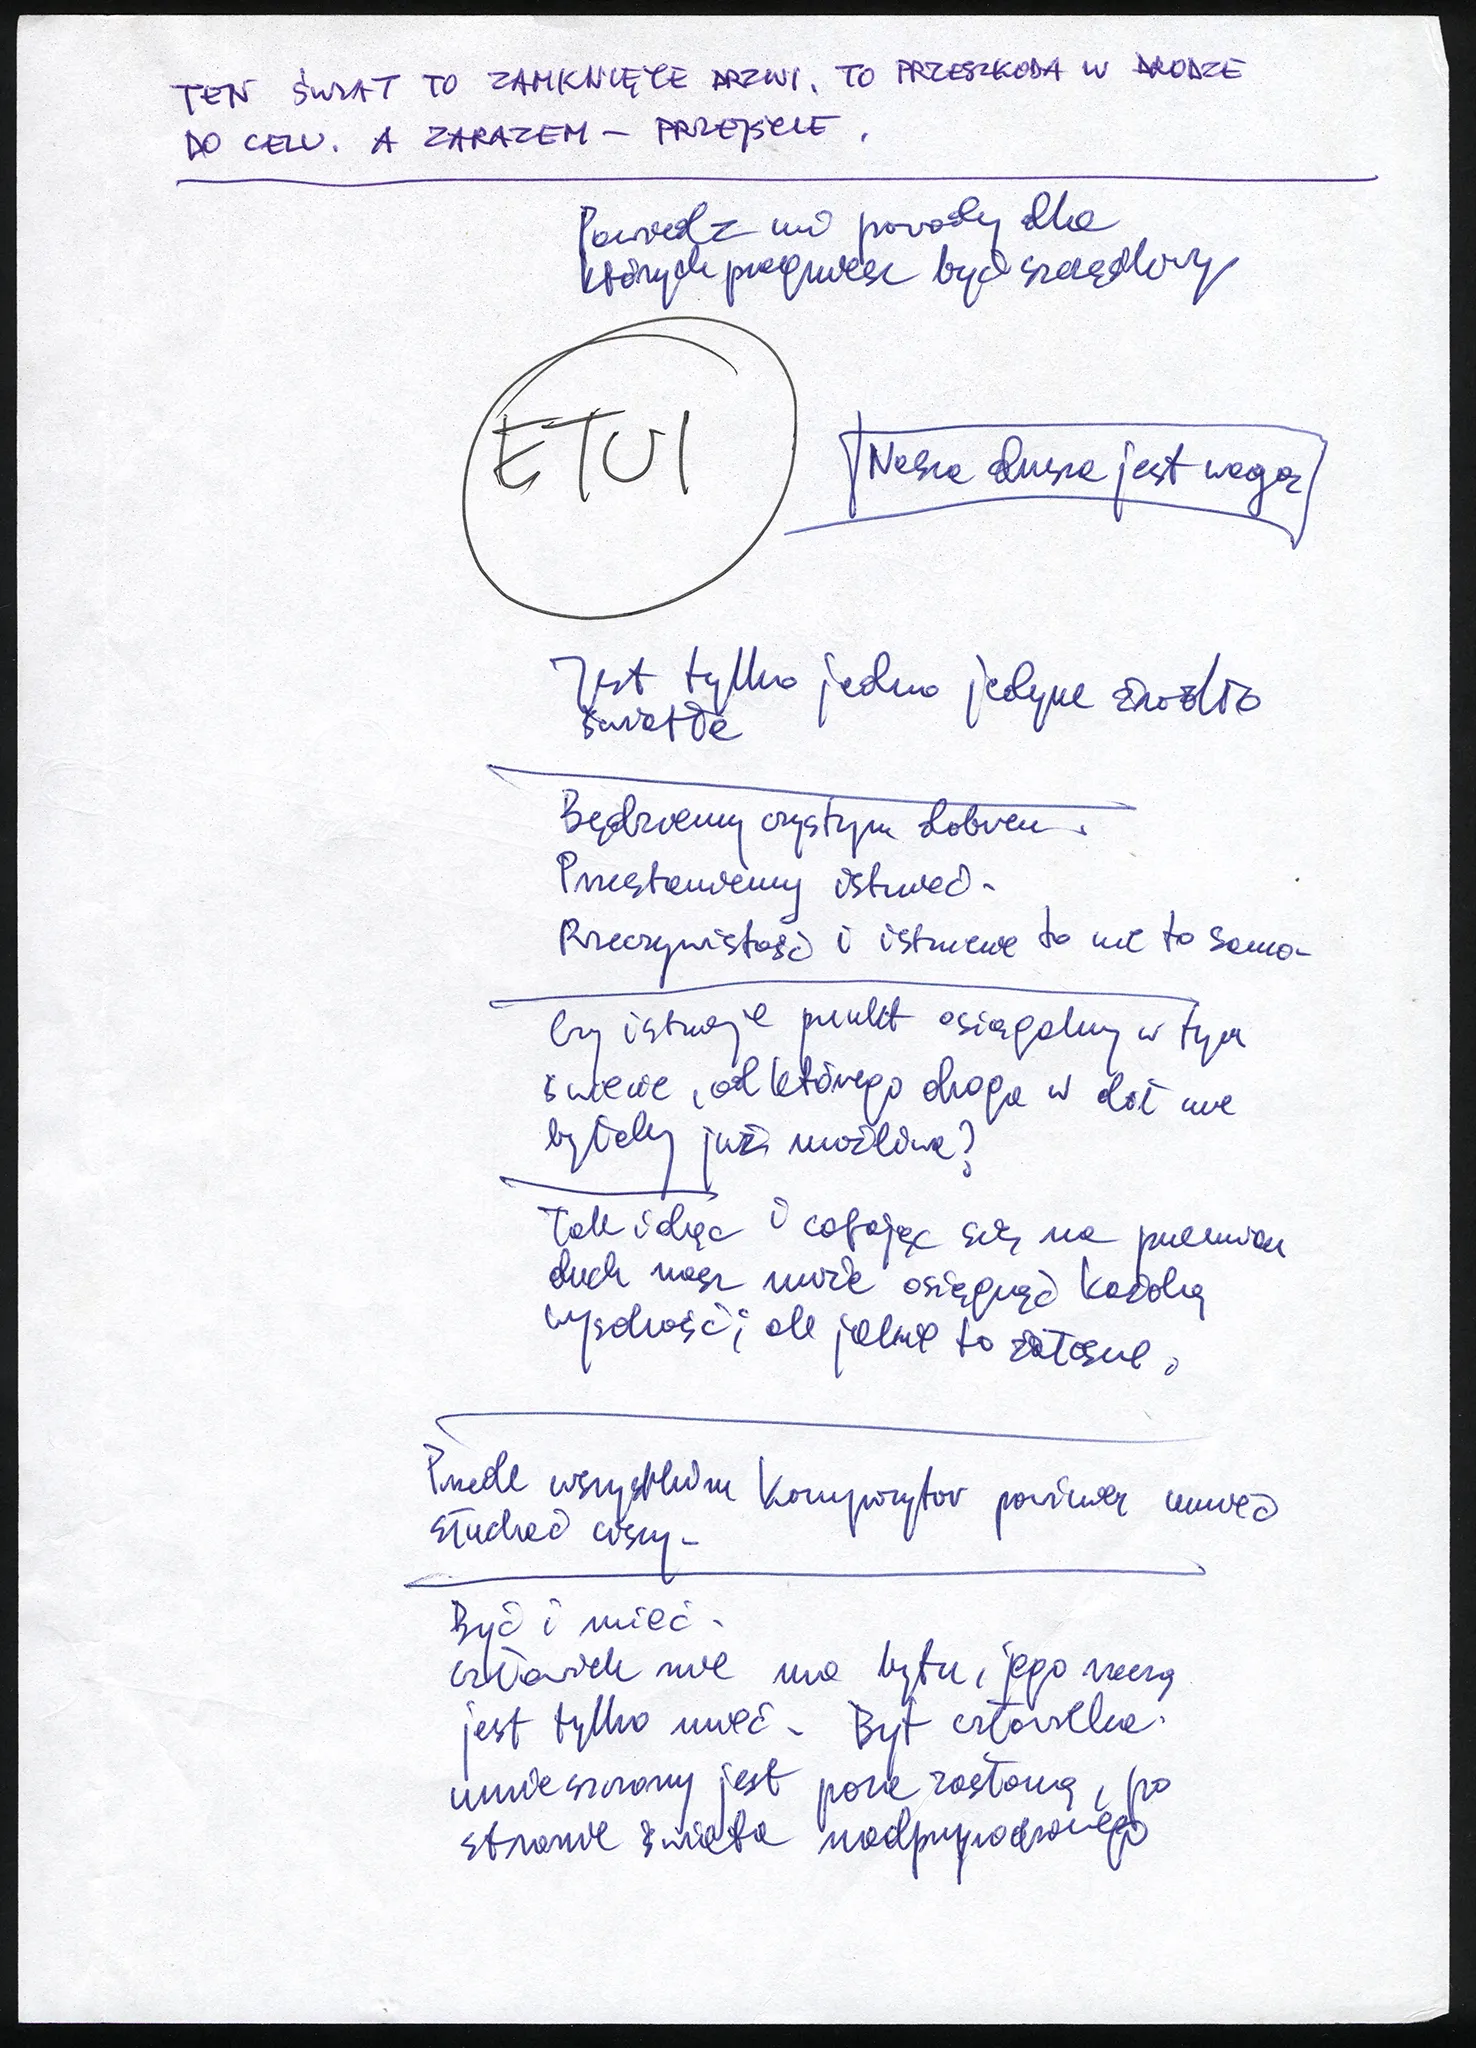 TEN ŚWIAT TO ZAMKNIĘTE DRZWI. TO PRZESZKODA W DRODZE
DO CELU. A ZARAZEM – PRZEJŚCIE.
Powiedz mi powody dla
których pragniesz być szczęśliwy
ETUI
Nasza dusza jest wagą
Jest tylko jedno jedyne źródło
światła
Będziemy czystym dobrem.
Przestaniemy istnieć.
Rzeczywistość i istnienie to nie to samo.
Czy istnieje punkt osiągalny w tym
świecie, od którego droga w dół nie
byłaby już możliwa?
Tak idąc i cofając się na przemian
duch nasz może osiągnąć każdą
wysokość, ale jakie to żałosne.
Przede wszystkim kompozytor powinien umieć
słuchać ciszy.
Być i mieć.
Człowiek nie ma bytu, jego rzeczą
jest tylko mieć. Byt człowieka
umieszczony jest poza zasłoną, po
stronie świata nadprzyrodzonego